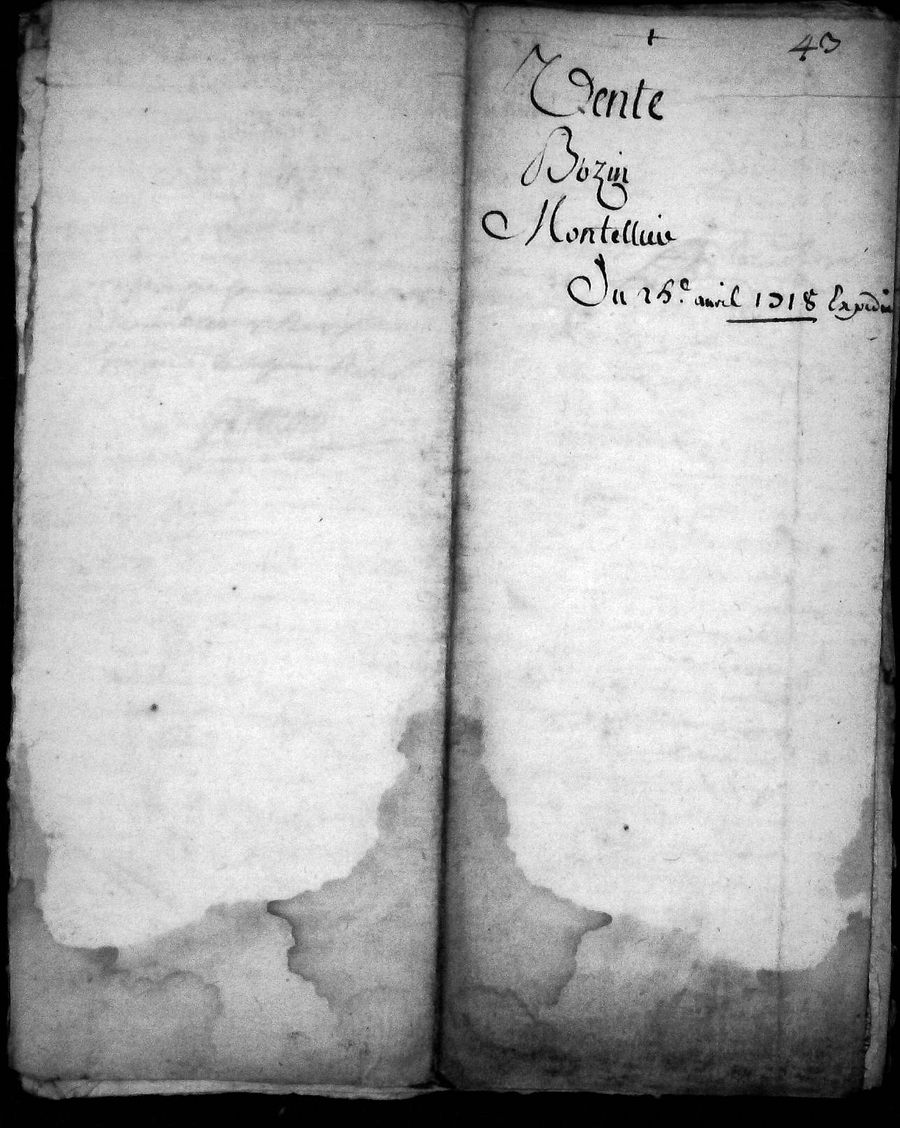 +
43
Vente
Bozin
Montelluiv
Du 26e avril 1718 Expedié